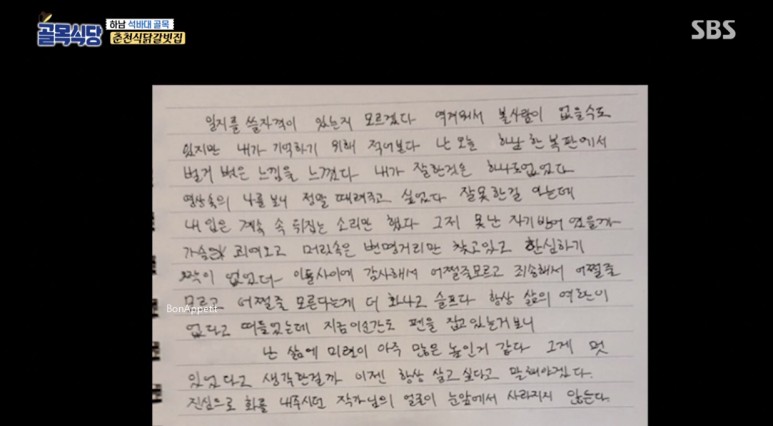 골목식당
하남 석바대 골목
춘천식닭갈빗집
SBS
일지를 쓸자격이 있는지 모르겠다 역겨워서 볼사람이 없을수도
있지만 내가 기억하기 위해 적어본다 난 오늘 하남 한복판에서
벌거 벗은 느낌을 느꼈다 내가 잘한것은 하나도없었다
영상속의 나를 보니 정말 때려주고 싶었다 잘못한걸 아는데
내 입은 계속 속 뒤집는 소리만 했다 그저 못난 자기방어 였을까
가슴은 죄여오고 머릿속은 변명거리만 찾고있고 한심하기
짝이 없었다 이들사이에 감사해서 어쩔줄모르고 죄송해서 어쩔줄
모르고 어쩔줄 모른다는게 더 화나고 슬프다 항상 삶의 역한이
없다고 떠들었는데 지금이순간도 펜을 잡고있는거보니
난 삶에 미련이 아주 많은 놈인거 같다 그게 멋
있었다고 생각한걸까 이젠 항상 살고싶다고 말해야겠다.
진심으로 화를 내주시던 작가님의 얼굴이 눈앞에서 사라지지 않는다.
BonAppetit